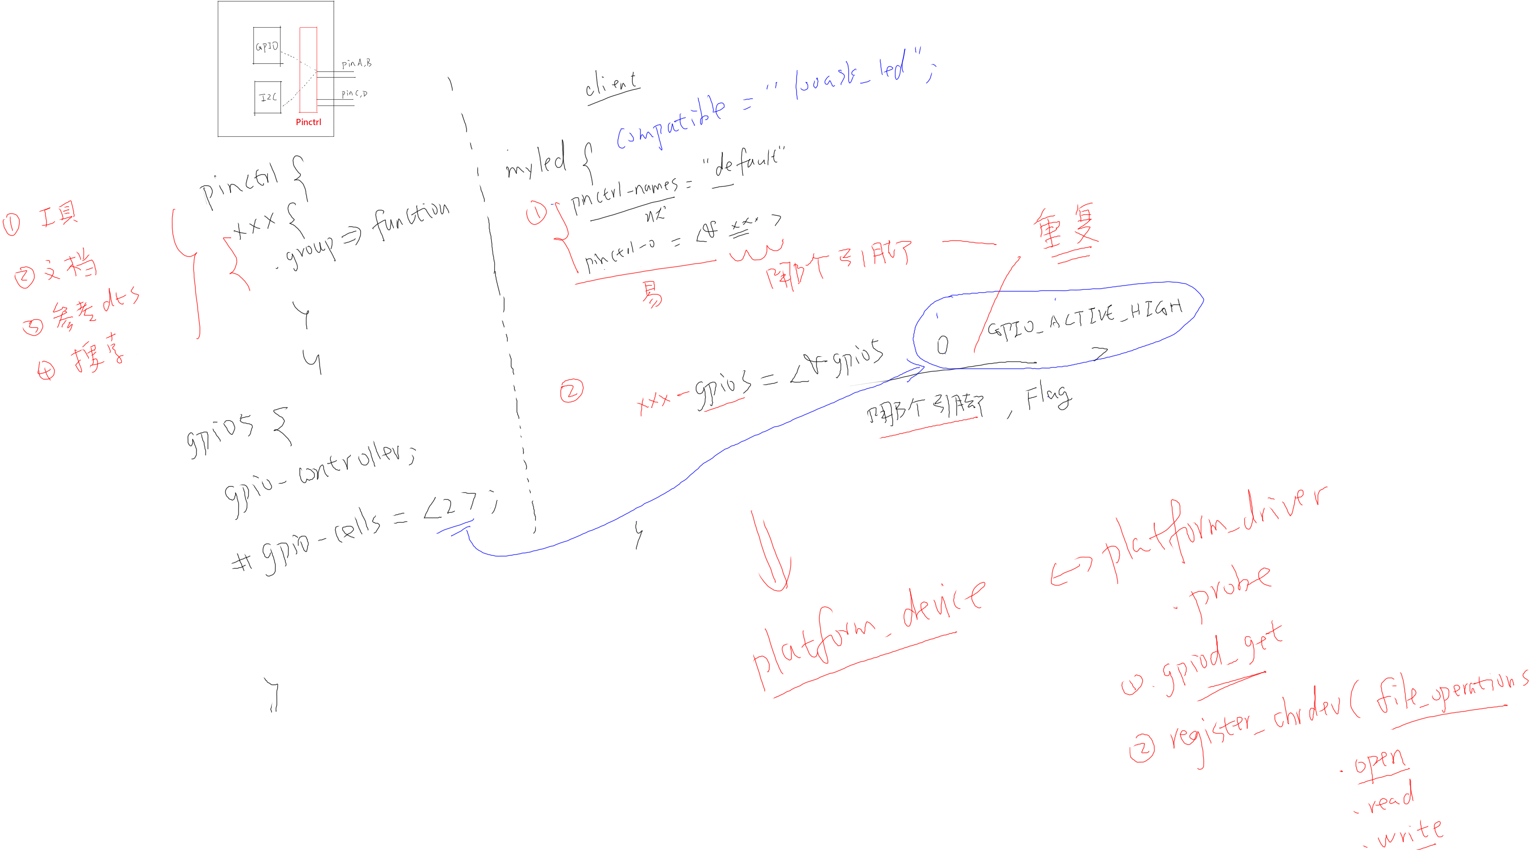 GPIO
I2C
pinA,B
pinC,D
Pinctrl
① 工具
② 文档
③ 参考dts
④ 搜索
pinctrl {
xxx {
. group => function
}
}
gpio5 {
gpio-controller;
#gpio-cells = <2>;
}
client
myled {
compatible = "100ask_led";
①
pinctrl-names = "default"
pinctrl-0 = <& xxx>
易
哪个引脚
重复
② xxx-gpios = <&gpio5 0 GPIO_ACTIVE_HIGH >
哪个引脚, Flag
}
platform_device <-> platform_driver
. probe
①. gpiod_get
② register_chrdev( file_operations
. open
. read
. write